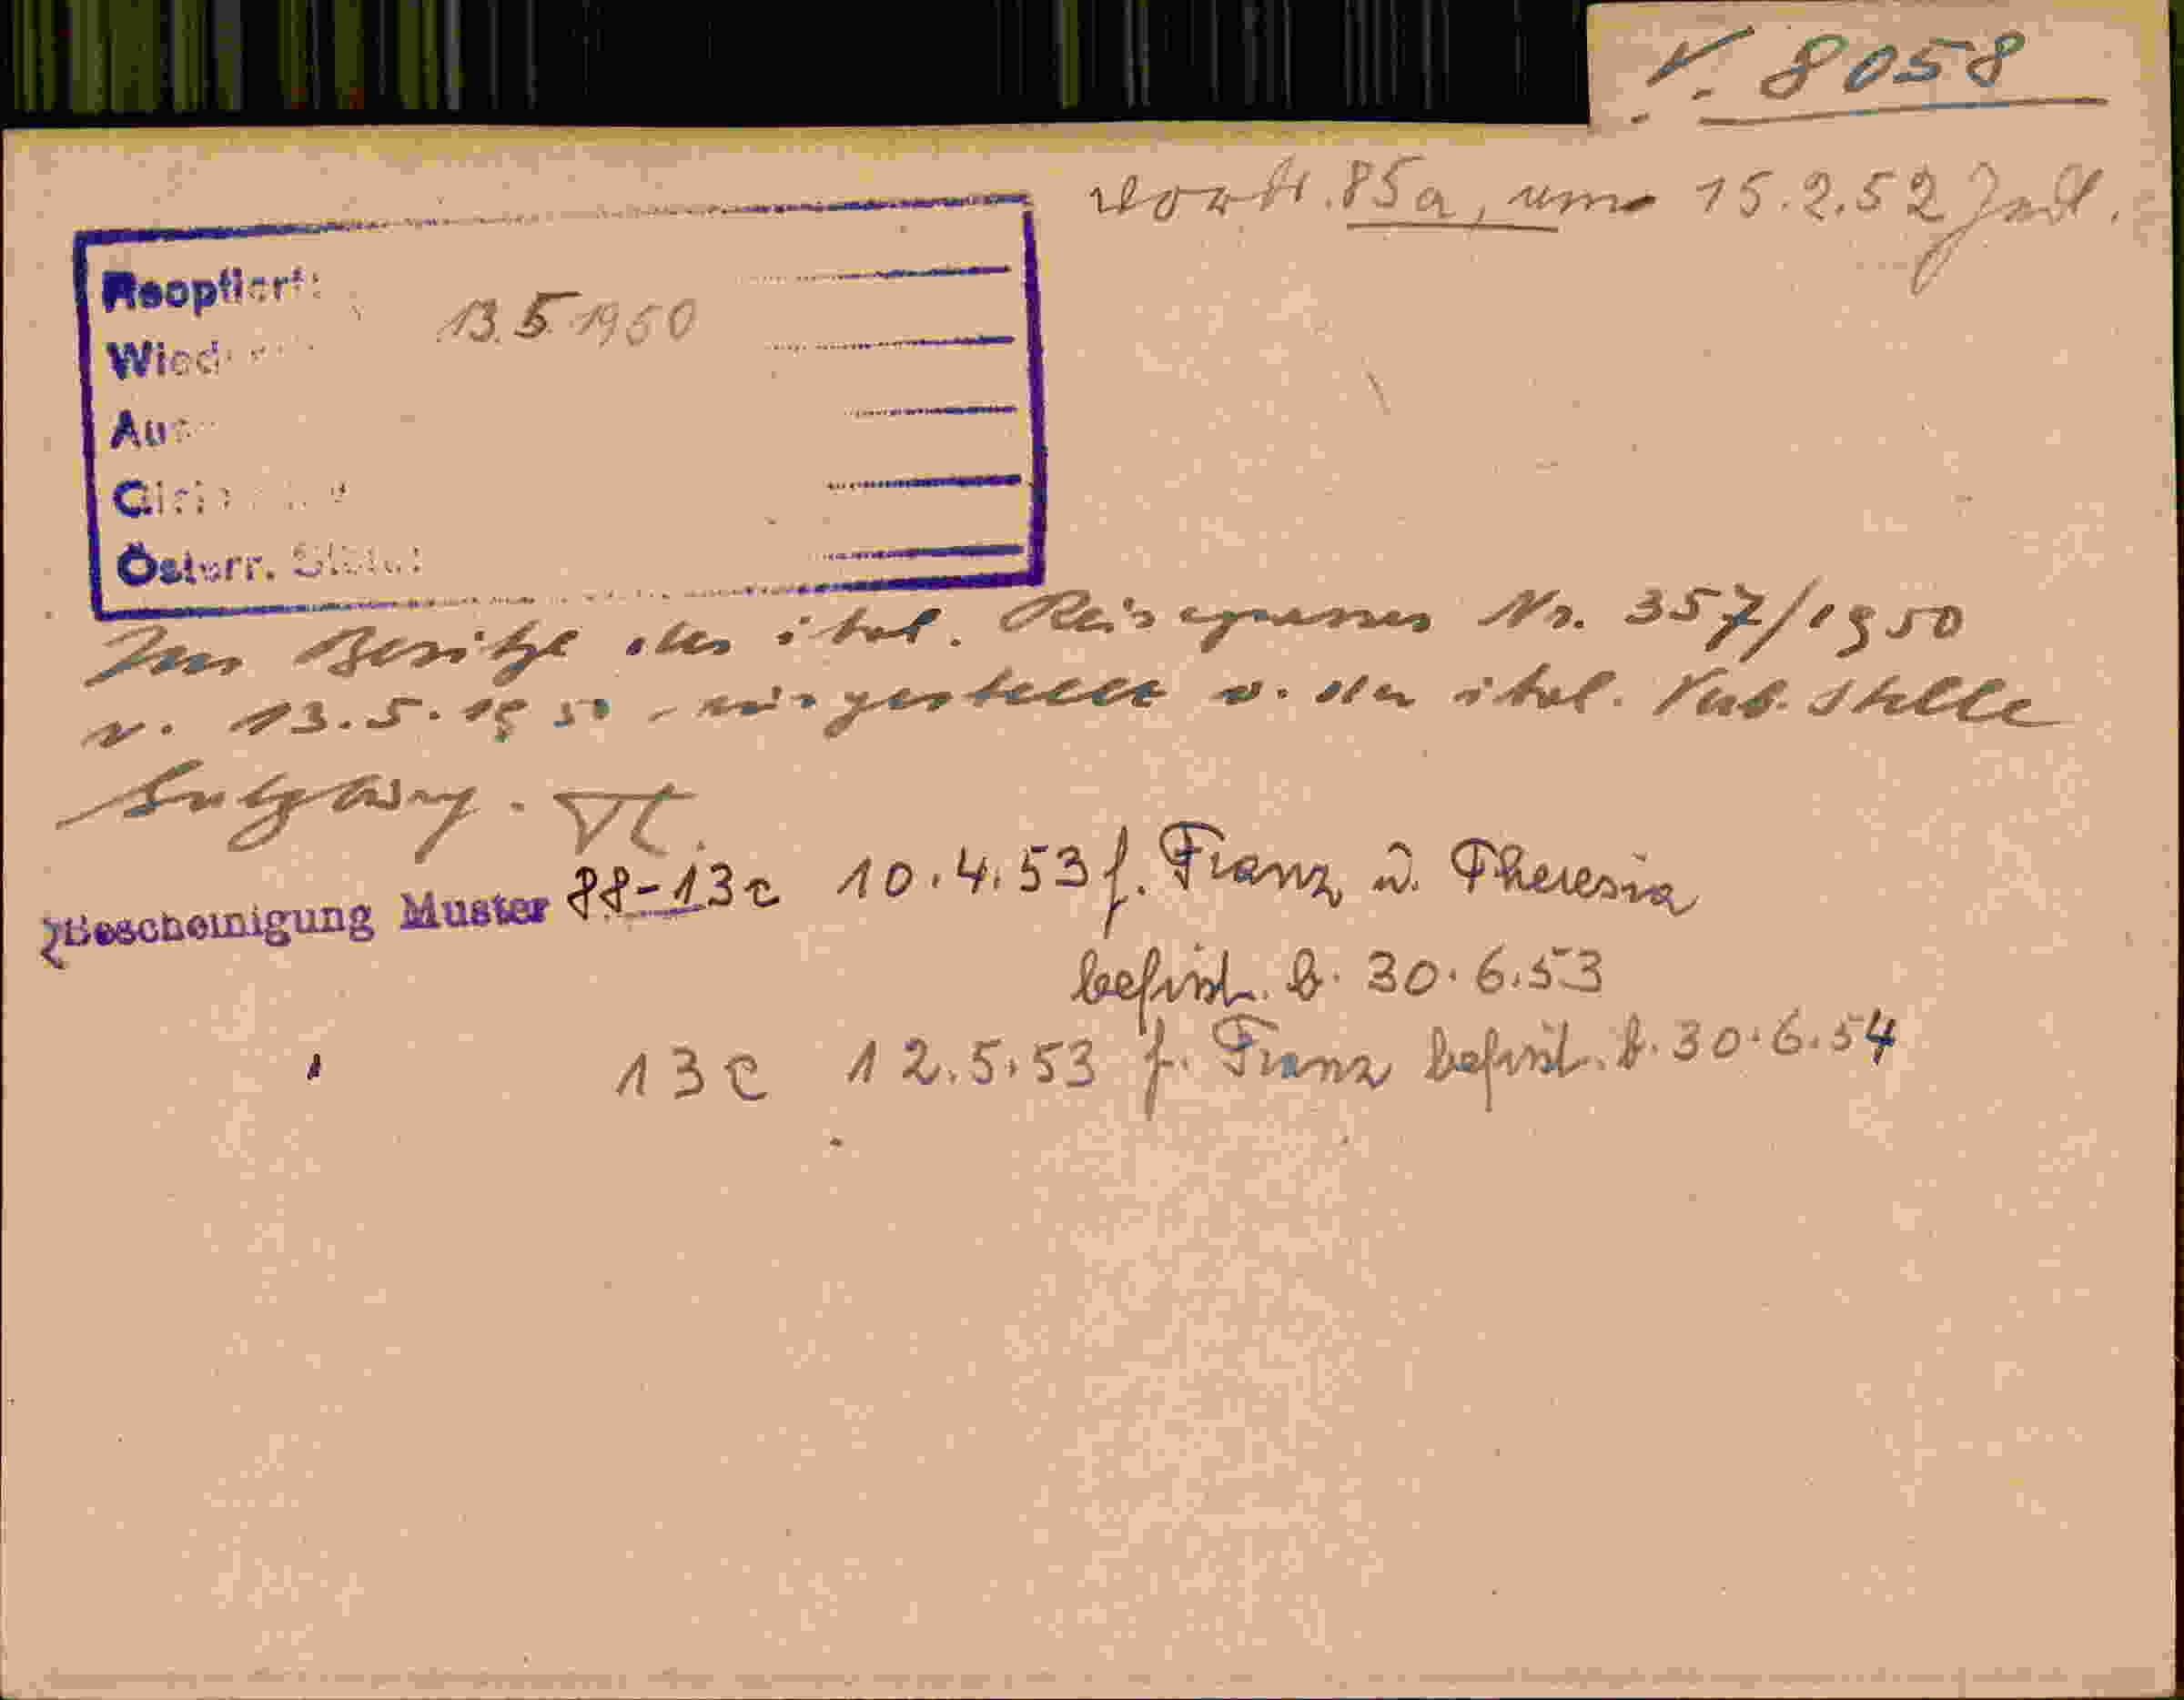 V. 8058
85a, 15.2.52
Reoptiert:
13.5.1950
Österr.
Im Besitze des ital. Reisepasses Nr. 357/1950
v. 13.5.1950, ausgestellt v. der ital. Verb. Stelle
Salzburg.
Bescheinigung Muster 88-13c 10.4.53 f. Franz u. Theresia
befrist. b. 30.6.53
13c 12.5.53 f. Franz befrist. b. 30.6.54